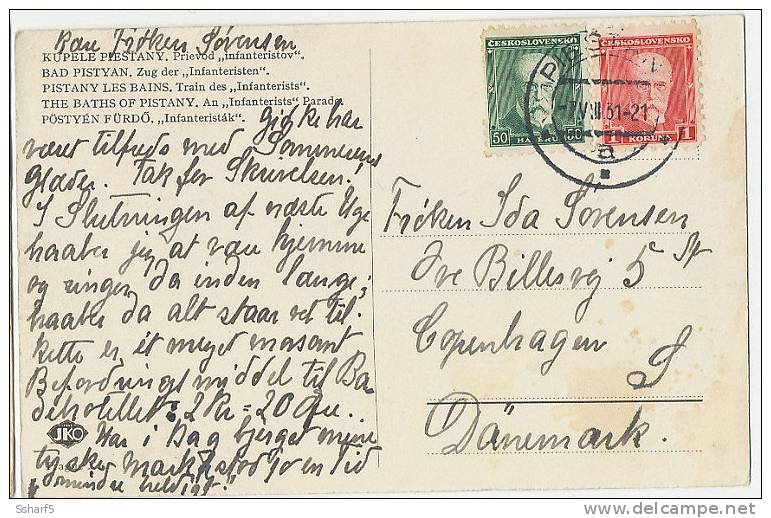 Kære Frøken Sørensen
KÚPELE PIEŠŤANY. Prievod „infanteristov“.
BAD PISTYAN. Zug der „Infanteristen“.
PISTANY LES BAINS. Train des „Infanterists“.
THE BATHS OF PISTANY. An „Infanterists“ Parade
PÖSTYÉN FÜRDŐ. „Infanteristák“.
De ikke har
været tilfreds med Sommerens
Glæder. Tak for Skrivelsen!
I Slutningen af næste Uge
haaber jeg at være hjemme
og ringer da inden længe;
haaber da alt staar vel til.
Dette er ét meget morsomt
Befordringsmiddel til Ba
dehotellet: 2 Kr = 20 Øre.
Har i Dag bjerget mine
tyske Mark, stod jo en Tid
mindre heldigt!
JKO
ČESKOSLOVENSKO
50 HALÉŘŮ 50
ČESKOSLOVENSKO
1 KORUNA 1
-7.VIII.31-21
a
Frøken Ida Sørensen
Ove Billesvej 5 St
Copenhagen
S
Dänemark.
Scharf5
delcampe.net